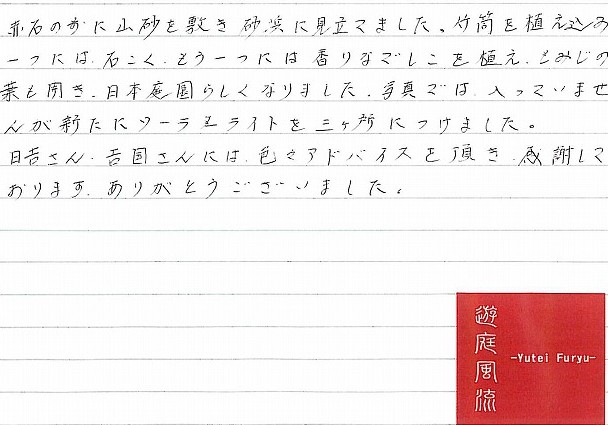 赤石の前に山砂を敷き砂浜に見立てました。竹筒を植え込み
一つには、石こく、もう一つには香りなでしこを植え、もみじの
葉も開き、日本庭園らしくなりました。写真では、入っていませ
んが新たにソーラーライトを三ヶ所につけました。
日吉さん、吉国さんには、色々アドバイスを頂き、感謝して
おります。ありがとうございました。
遊庭風流
-Yutei Furyu-